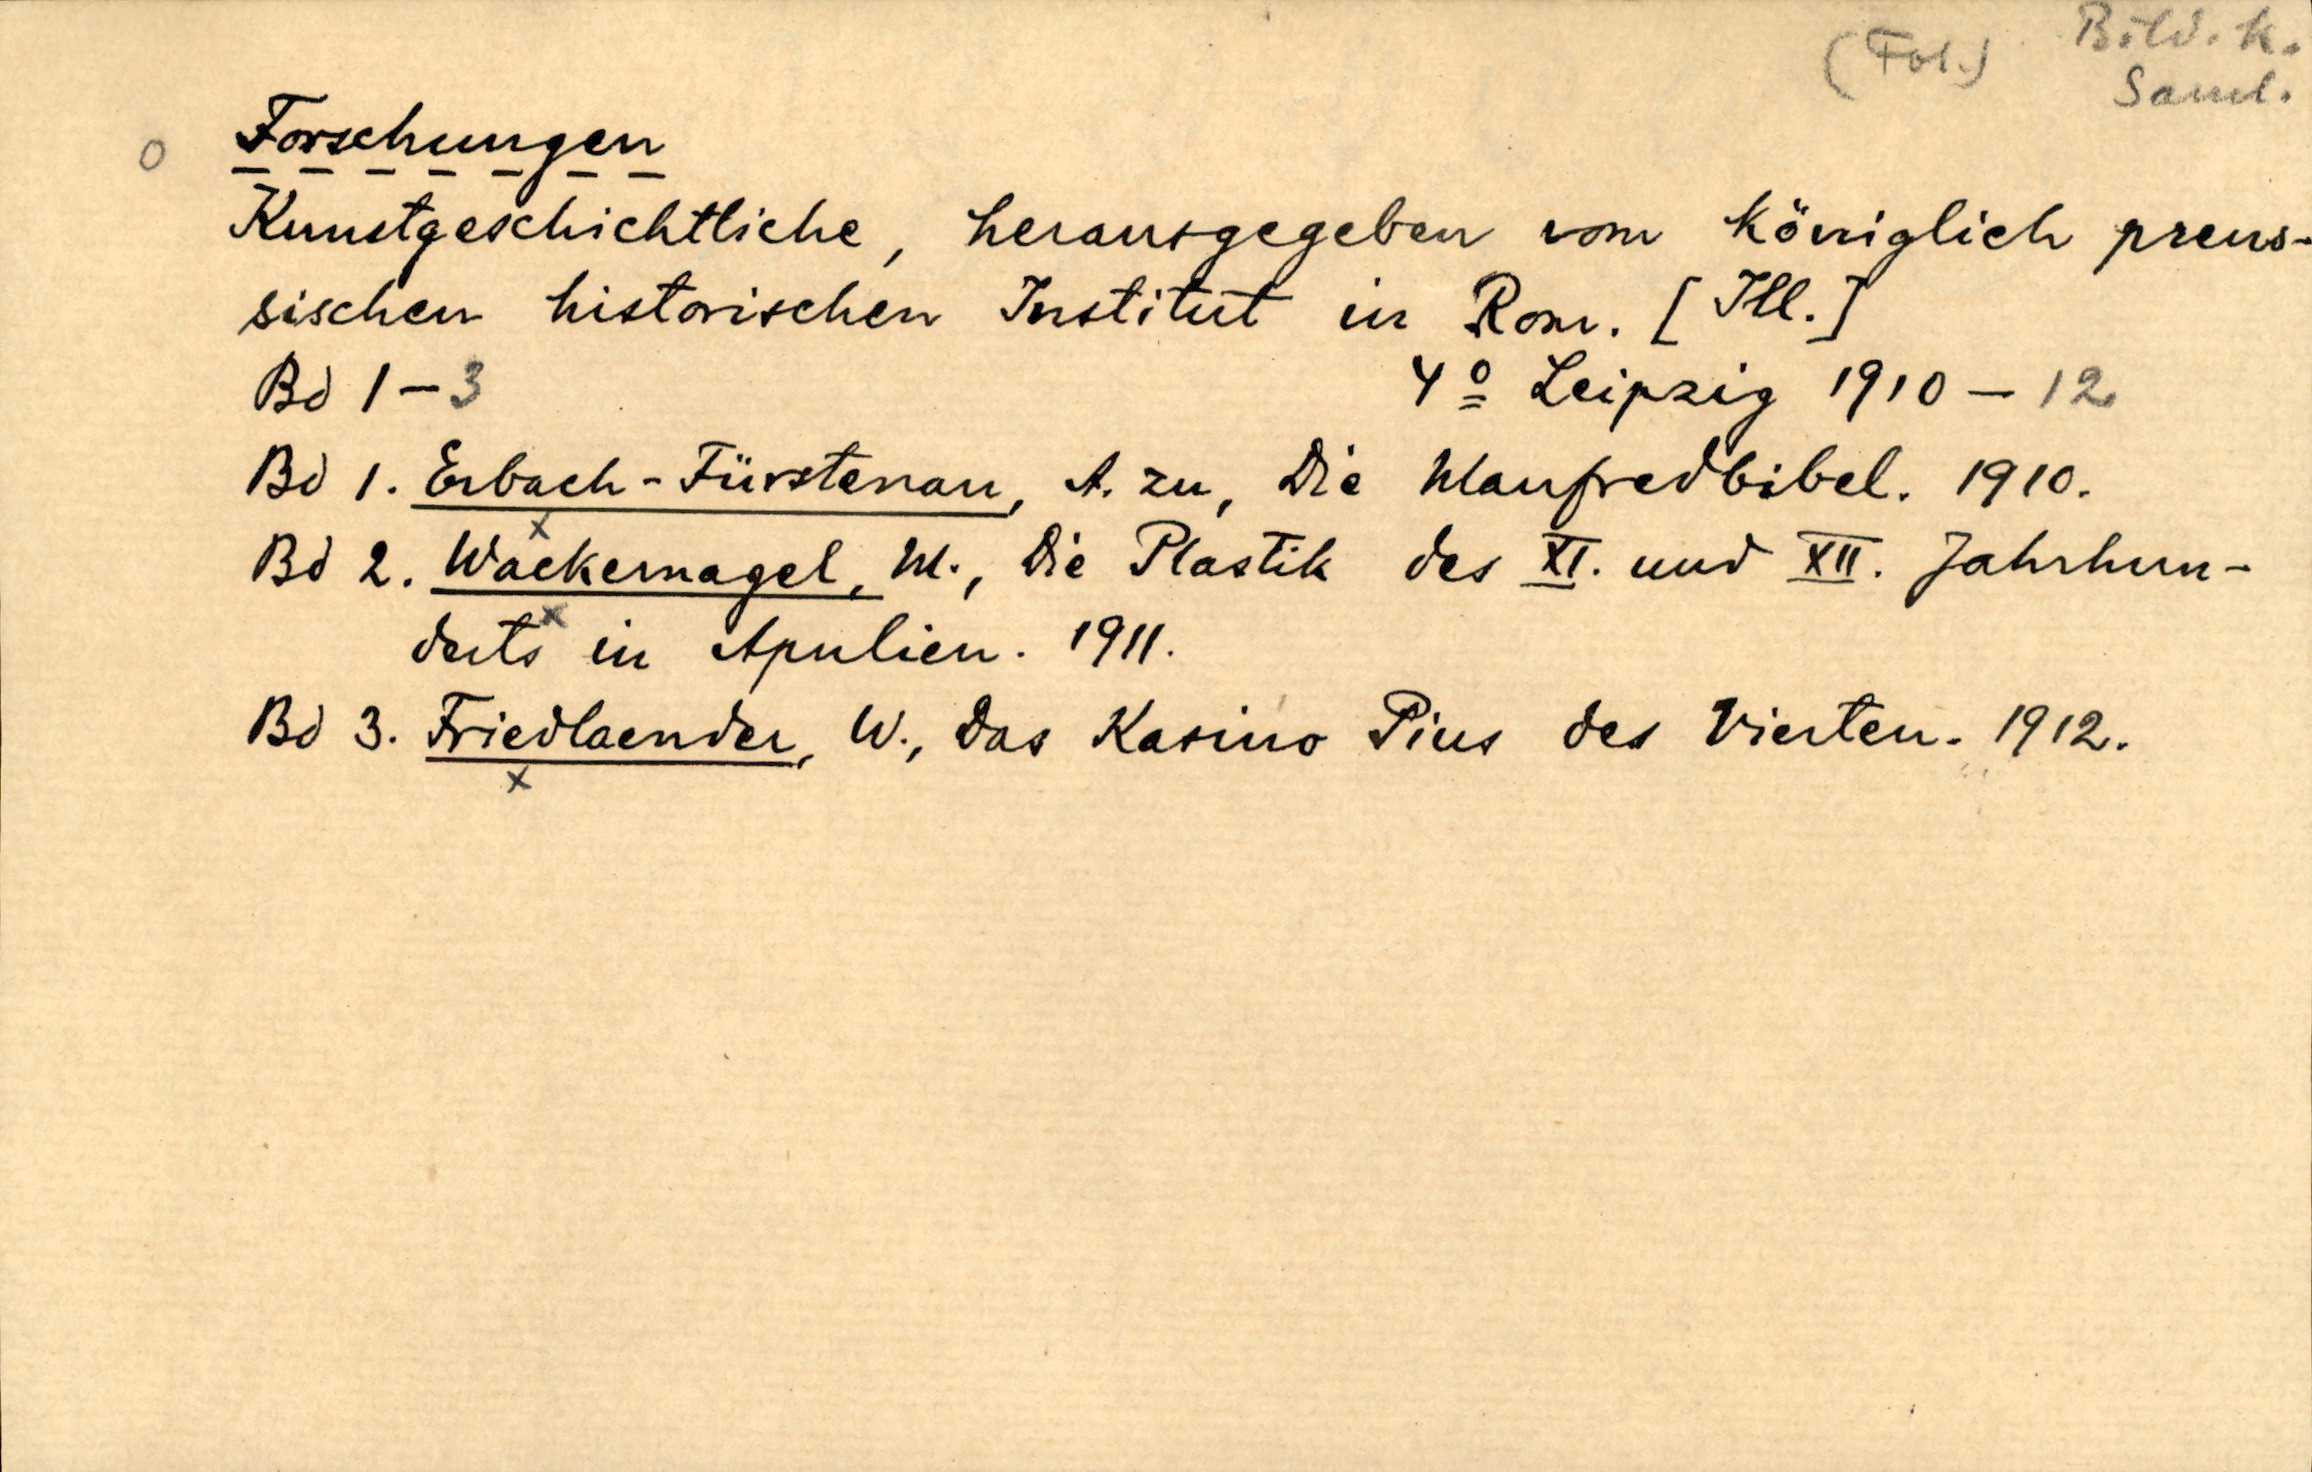 (Fol.) Bild. k.
Saml.
o Forschungen
Kunstgeschichtliche, herausgegeben vom königlich preus-
sischen historischen Institut in Rom. [Ill.]
Bd 1-3 4º Leipzig 1910-12
Bd 1. Erbach-Fürstenau, A. zu, Die Manfredbibel. 1910.
x
Bd 2. Wackernagel, M., Die Plastik des XI. und XII. Jahrhun-
x
derts in Apulien. 1911.
Bd 3. Friedlaender, W., Das Kasino Pius des Vierten. 1912.
x